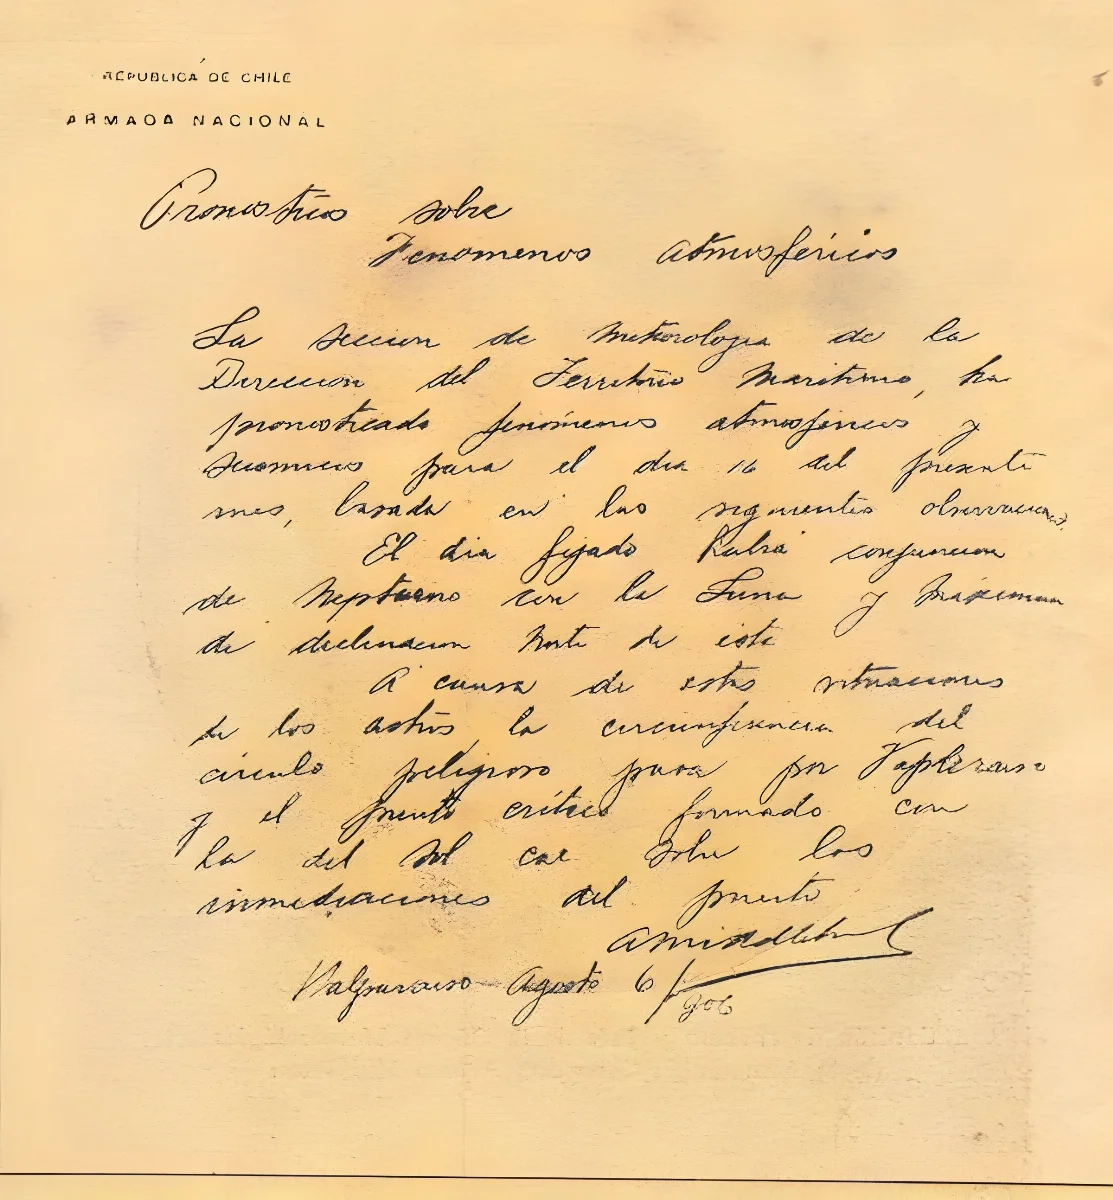 REPUBLICA DE CHILE
ARMADA NACIONAL
Pronosticos sobre
Fenomenos atmosféricos
La seccion de meteorologia de la
Direccion del Territorio Maritimo, ha
pronosticado fenómenos atmosfericos y
sismicos para el dia 16 del presente
mes, basada en las siguientes observaciones.
El dia fijado habrá conjuncion
de Neptuno con la Luna y máximun
de declinacion Norte de esta
A causa de estas situaciones
de los astros, la circunferencia del
círculo peligroso pasa por Valparaiso
y el punto crítico formado con
la del Sol cae sobre las
inmediaciones del puerto
Valparaiso Agosto 6/906